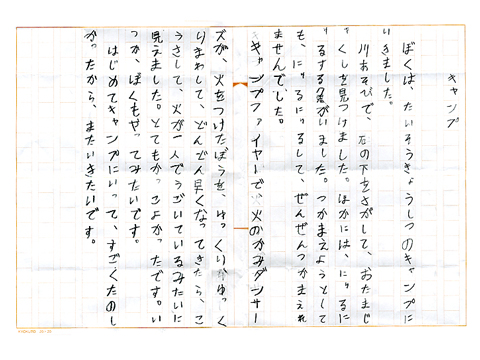 キャンプ
ぼくは、たいそうきょうしつのキャンプに
いきました。
川あそびで、石の下をさがして、おたまじ
ゃくしを見つけました。ほかには、にゅるに
ゅるする魚がいました。つかまえようとして
も、にゅるにゅるして、ぜんぜんつかまえれ
ませんでした。
キャンプファイヤーで、火のかみダンサー
ズが、火をつけたぼうを、ゆっくりゆっく
りまわして、どんどん早くなってきたら、こ
うさして、火が一人でうごいているみたいに
見えました。とてもかっこよかったです。い
つか、ぼくもやってみたいです。
はじめてキャンプにいって、すごくたのし
かったから、またいきたいです。